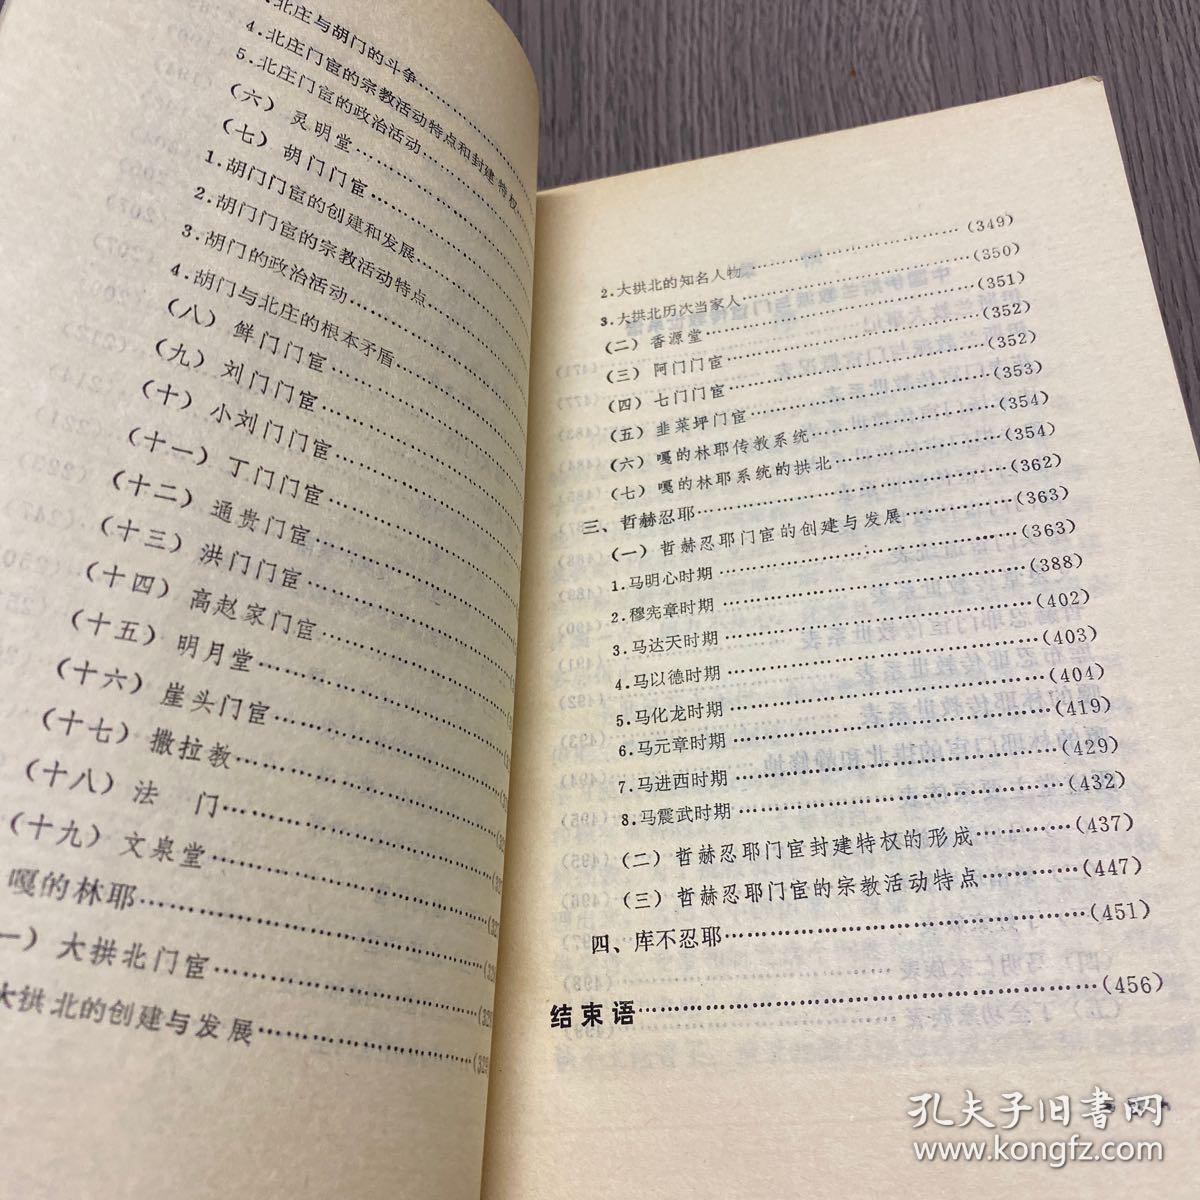 北庄与胡门的斗争……
4.北庄门宦的宗教活动特点和封建特权……
5.北庄门宦的政治活动……
(六) 灵明堂……
(七) 胡门门宦……
1.胡门门宦的创建和发展……
2.胡门门宦的宗教活动特点……
3.胡门的政治活动……
4.胡门与北庄的根本矛盾……
(八) 鲜门门宦……
(九) 刘门门宦……
(十) 小刘门门宦……
(十一) 丁门门宦……
(十二) 通贵门宦……
(十三) 洪门门宦……
(十四) 高赵家门宦……
(十五) 明月堂……
(十六) 崖头门宦……
(十七) 撒拉教……
(十八) 法 门……
(十九) 文泉堂……
嘎的林耶……
一) 大拱北门宦……
大拱北的创建与发展……
2.大拱北的知名人物……(349)
3.大拱北历次当家人……(350)
(二) 香源堂……(351)
(三) 阿门门宦……(352)
(四) 七门门宦……(352)
(五) 韭菜坪门宦……(353)
(六) 嘎的林耶传教系统……(354)
(七) 嘎的林耶系统的拱北……(354)
三、哲赫忍耶……(362)
(一) 哲赫忍耶门宦的创建与发展……(363)
1.马明心时期……(363)
2.穆宪章时期……(388)
3.马达天时期……(402)
4.马以德时期……(403)
5.马化龙时期……(404)
6.马元章时期……(419)
7.马进西时期……(429)
8.马震武时期……(432)
(二) 哲赫忍耶门宦封建特权的形成……(437)
(三) 哲赫忍耶门宦的宗教活动特点……(447)
四、库不忍耶……(451)
结束语……(456)
孔夫子旧书网
www.kongfz.com